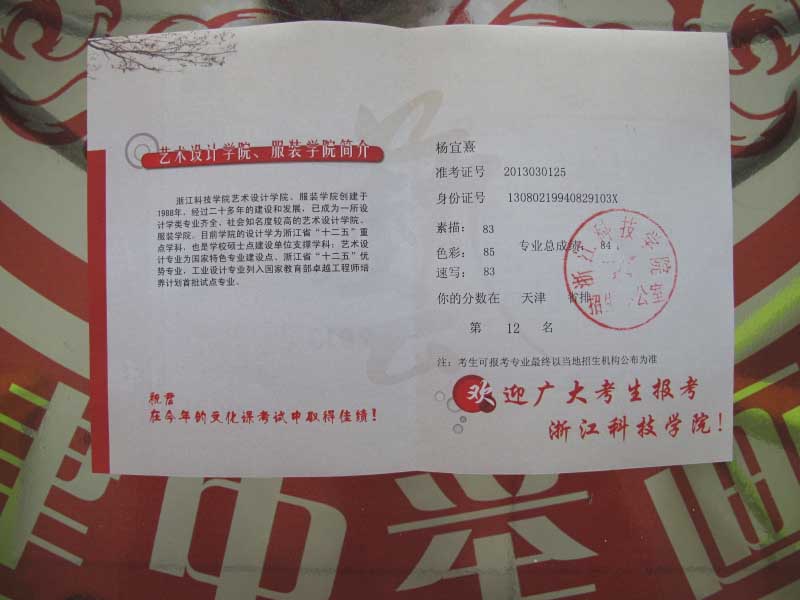 艺术设计学院、服装学院简介
浙江科技学院艺术设计学院、服装学院创建于
1988年，经过二十多年的建设和发展，已成为一所设
计学类专业齐全、社会知名度较高的艺术设计学院、
服装学院。目前学院的设计学为浙江省“十二五”重
点学科，也是学校硕士点建设单位支撑学科；艺术设
计专业为国家特色专业建设点、浙江省“十二五”优
势专业，工业设计专业列入国家教育部卓越工程师培
养计划首批试点专业。
祝君
在今年的文化课考试中取得佳绩！
杨宜熹
准考证号 2013030125
身份证号 13080219940829103X
素描： 83
专业总成绩： 84
色彩： 85
速写： 83
你的分数在 天津 省排
第 12 名
注：考生可报考专业最终以当地招生机构公布为准
欢迎广大考生报考
浙江科技学院！
浙江科技学院
招生